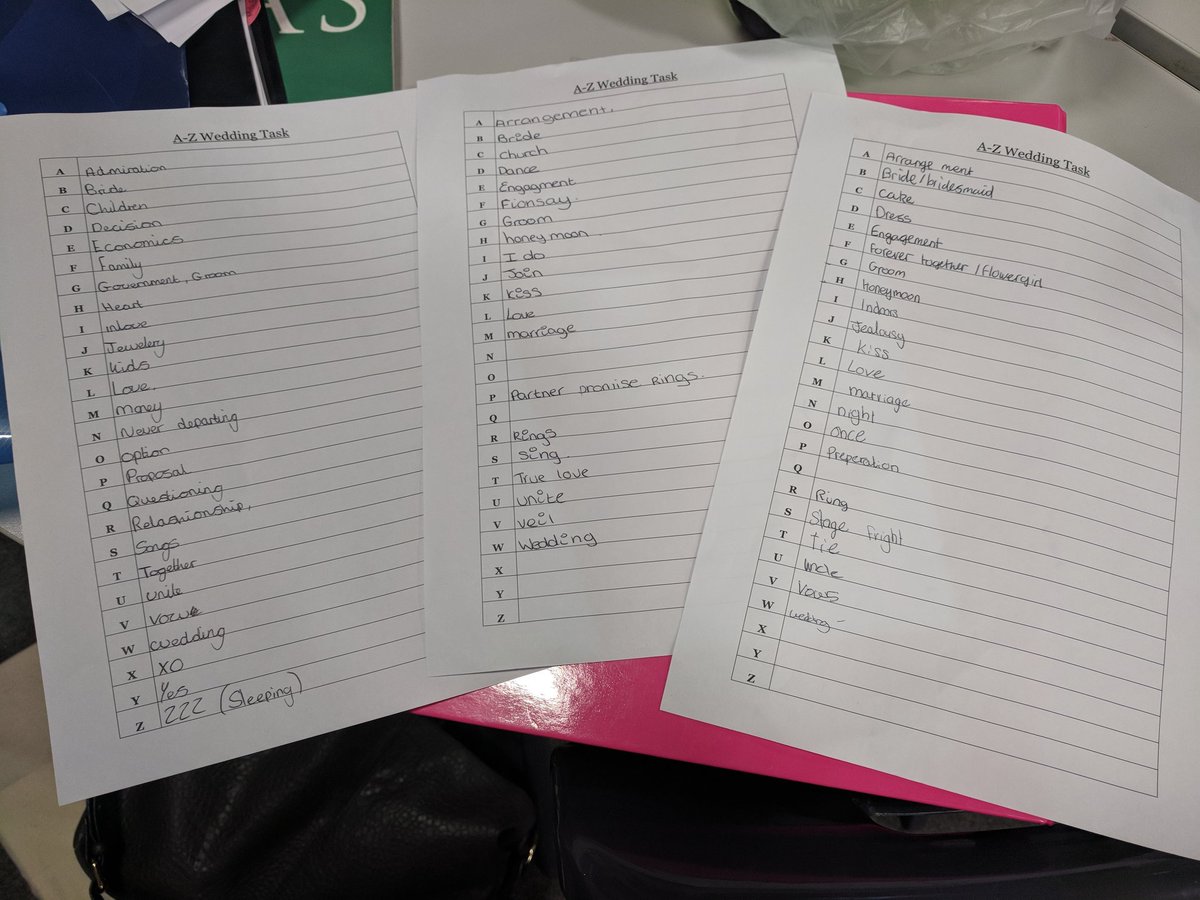 AS
A-Z Wedding Task
A Admiration
B Bride
C Children
D Decision
E Economics
F Family
G Government, Groom
H Heart
I inlove
J Jewelery
K Kids
L Love,
M Money
N Never departing
O option
P Proposal
Q Questioning
R Relashionship,
S Songs
T Together
U unite
V
W wedding
X XO
Y Yes
Z ZZZ (Sleeping)
A-Z Wedding Task
A Arrangement,
B Bride
C Church
D Dance
E Engagment
F Fionsay.
G Groom
H honey moon
I I do
J Join
K kiss
L Love
M marriage
N
O
P Partner promise Rings.
Q
R Rings
S Sing
T True love
U unite
V veil
W Wedding
X
Y
Z
A-Z Wedding Task
A Arrange ment
B Bride/bridesmaid
C Cake
D Dress
E Engagement
F forever together /flowergirl
G Groom
H Honeymoon
I Indoors
J Jealousy
K kiss
L Love
M marriage
N night
O once
P Preperation
Q
R Ring
S Stage fright
T Tie
U uncle
V Vows
W wedding -
X
Y
Z